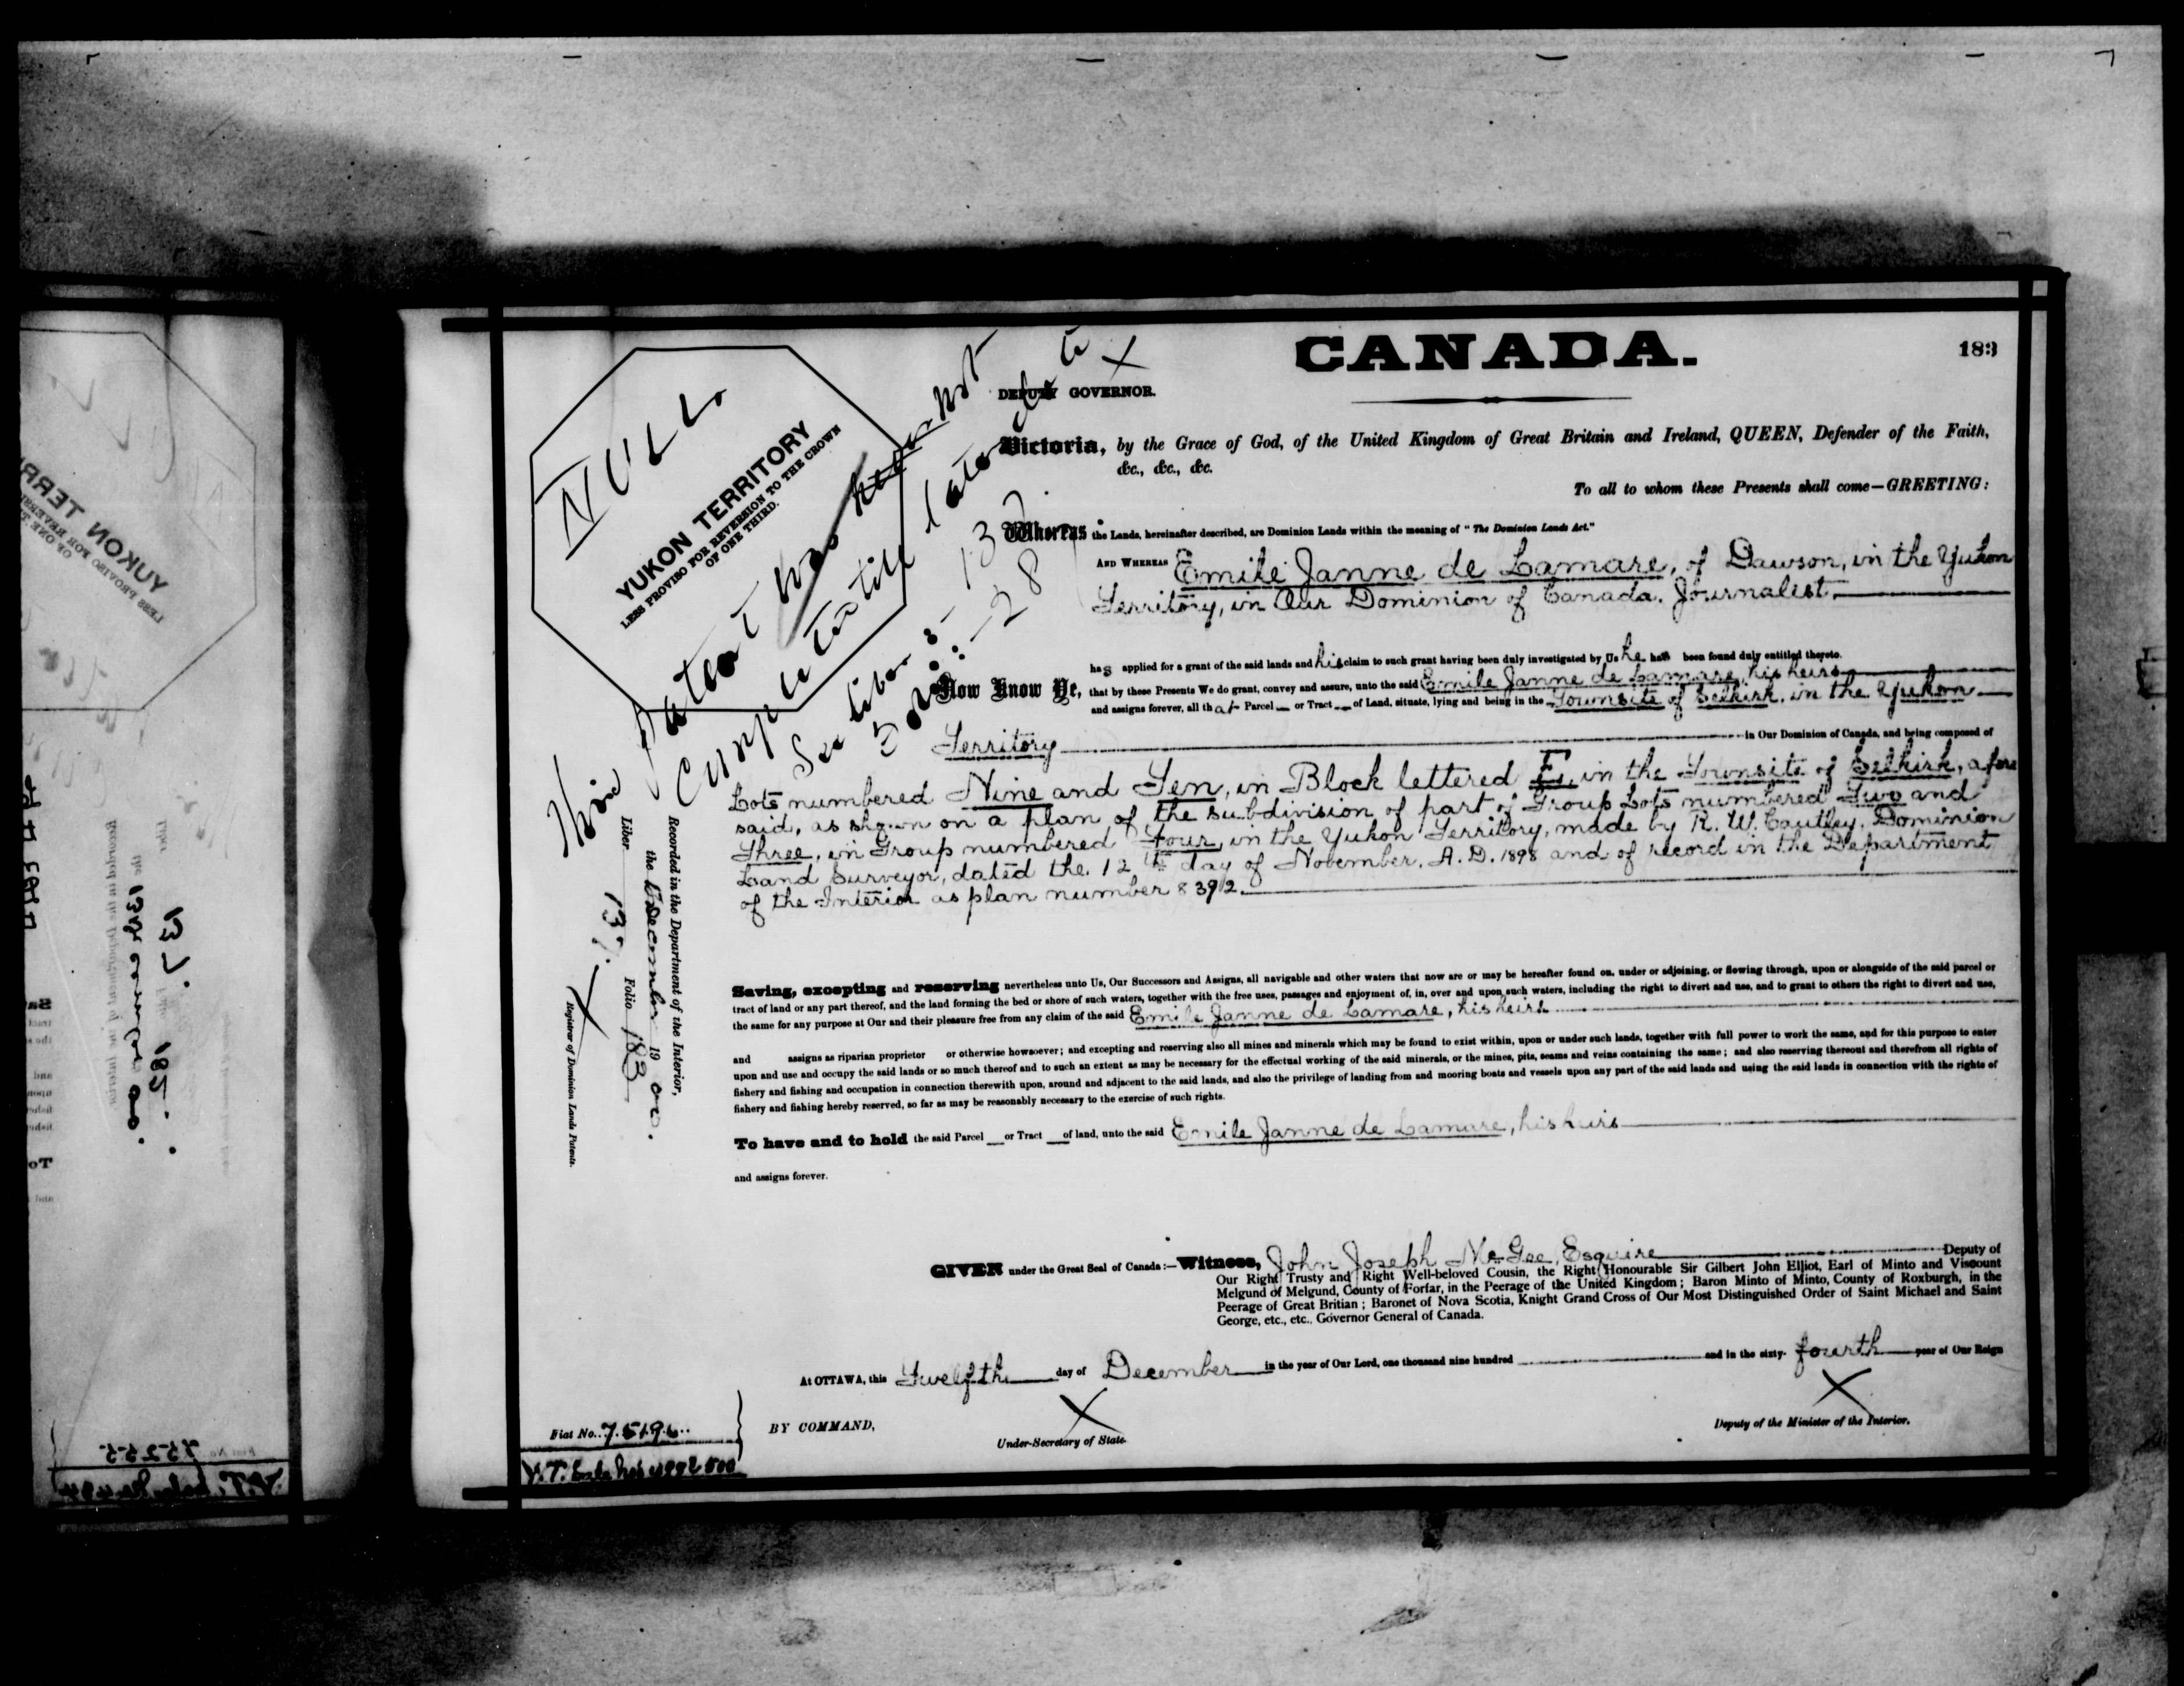 CANADA.
183
DEPUTY GOVERNOR.
NULL
YUKON TERRITORY
LESS PROVISO FOR REVERSION TO THE CROWN
OF ONE THIRD.
Patent was not
complete till later date
See liber :- 137
Folio :- 28
Victoria, by the Grace of God, of the United Kingdom of Great Britain and Ireland, QUEEN, Defender of the Faith,
&c., &c., &c.
To all to whom these Presents shall come—GREETING:
Whereas the Lands, hereinafter described, are Dominion Lands within the meaning of "The Dominion Lands Act."
AND WHEREAS Emile Janne de Lamare, of Dawson, in the Yukon
Territory, in Our Dominion of Canada. Journalist,
has applied for a grant of the said lands and his claim to such grant having been duly investigated by Us he hath been found duly entitled thereto.
Now Know Ye, that by these Presents We do grant, convey and assure, unto the said Emile Janne de Lamare, his heirs
and assigns forever, all that Parcel or Tract of Land, situate, lying and being in the Townsite of Selkirk, in the Yukon
Territory in Our Dominion of Canada, and being composed of
Lots numbered Nine and Ten, in Block lettered F, in the Townsite of Selkirk, afore
said, as shown on a plan of the subdivision of part of Group Lots numbered Two and
Three, in Group numbered Four, in the Yukon Territory, made by R. W. Cautley, Dominion
Land Surveyor, dated the 12th day of November, A. D. 1898 and of record in the Department
of the Interior as plan number 8392.
Recorded in the Department of the Interior,
the December 1900.
Liber 137. Folio 183
Registrar of Dominion Lands Patents.
Saving, excepting and reserving nevertheless unto Us, Our Successors and Assigns, all navigable and other waters that now are or may be hereafter found on, under or adjoining, or flowing through, upon or alongside of the said parcel or
tract of land or any part thereof, and the land forming the bed or shore of such waters, together with the free uses, passages and enjoyment of, in, over and upon such waters, including the right to divert and use, and to grant to others the right to divert and use,
the same for any purpose at Our and their pleasure free from any claim of the said Emile Janne de Lamare, his heirs
and assigns as riparian proprietor or otherwise howsoever; and excepting and reserving also all mines and minerals which may be found to exist within, upon or under such lands, together with full power to work the same, and for this purpose to enter
upon and use and occupy the said lands or so much thereof and to such an extent as may be necessary for the effectual working of the said minerals, or the mines, pits, seams and veins containing the same; and also reserving thereout and therefrom all rights of
fishery and fishing and occupation in connection therewith upon, around and adjacent to the said lands, and also the privilege of landing from and mooring boats and vessels upon any part of the said lands and using the said lands in connection with the rights of
fishery and fishing hereby reserved, so far as may be reasonably necessary to the exercise of such rights.
To have and to hold the said Parcel or Tract of land, unto the said Emile Janne de Lamare, his heirs
and assigns forever.
GIVEN under the Great Seal of Canada:—Witness, John Joseph McGee, Esquire Deputy of
Our Right Trusty and Right Well-beloved Cousin, the Right Honourable Sir Gilbert John Elliot, Earl of Minto and Viscount
Melgund of Melgund, County of Forfar, in the Peerage of the United Kingdom; Baron Minto of Minto, County of Roxburgh, in the
Peerage of Great Britian; Baronet of Nova Scotia, Knight Grand Cross of Our Most Distinguished Order of Saint Michael and Saint
George, etc., etc., Governor General of Canada.
At OTTAWA, this Twelfth day of December in the year of Our Lord, one thousand nine hundred and in the sixty-fourth year of Our Reign
BY COMMAND,
Under-Secretary of State.
Deputy of the Minister of the Interior.
Fiat No.